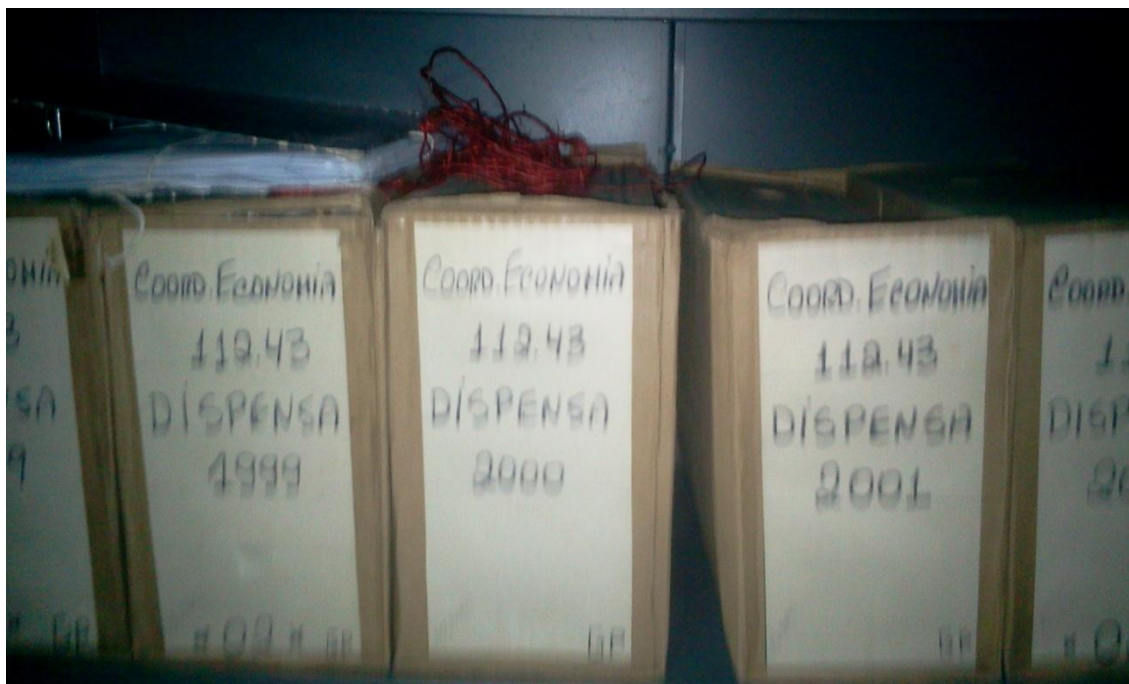 COORD. ECONOMIA
112.43
DISPENSA
1999
# 02 # GP
COORD. ECONOMIA
112.43
DISPENSA
2000
GP
COORD. ECONOMIA
112.43
DISPENSA
2001
GP
COORD.